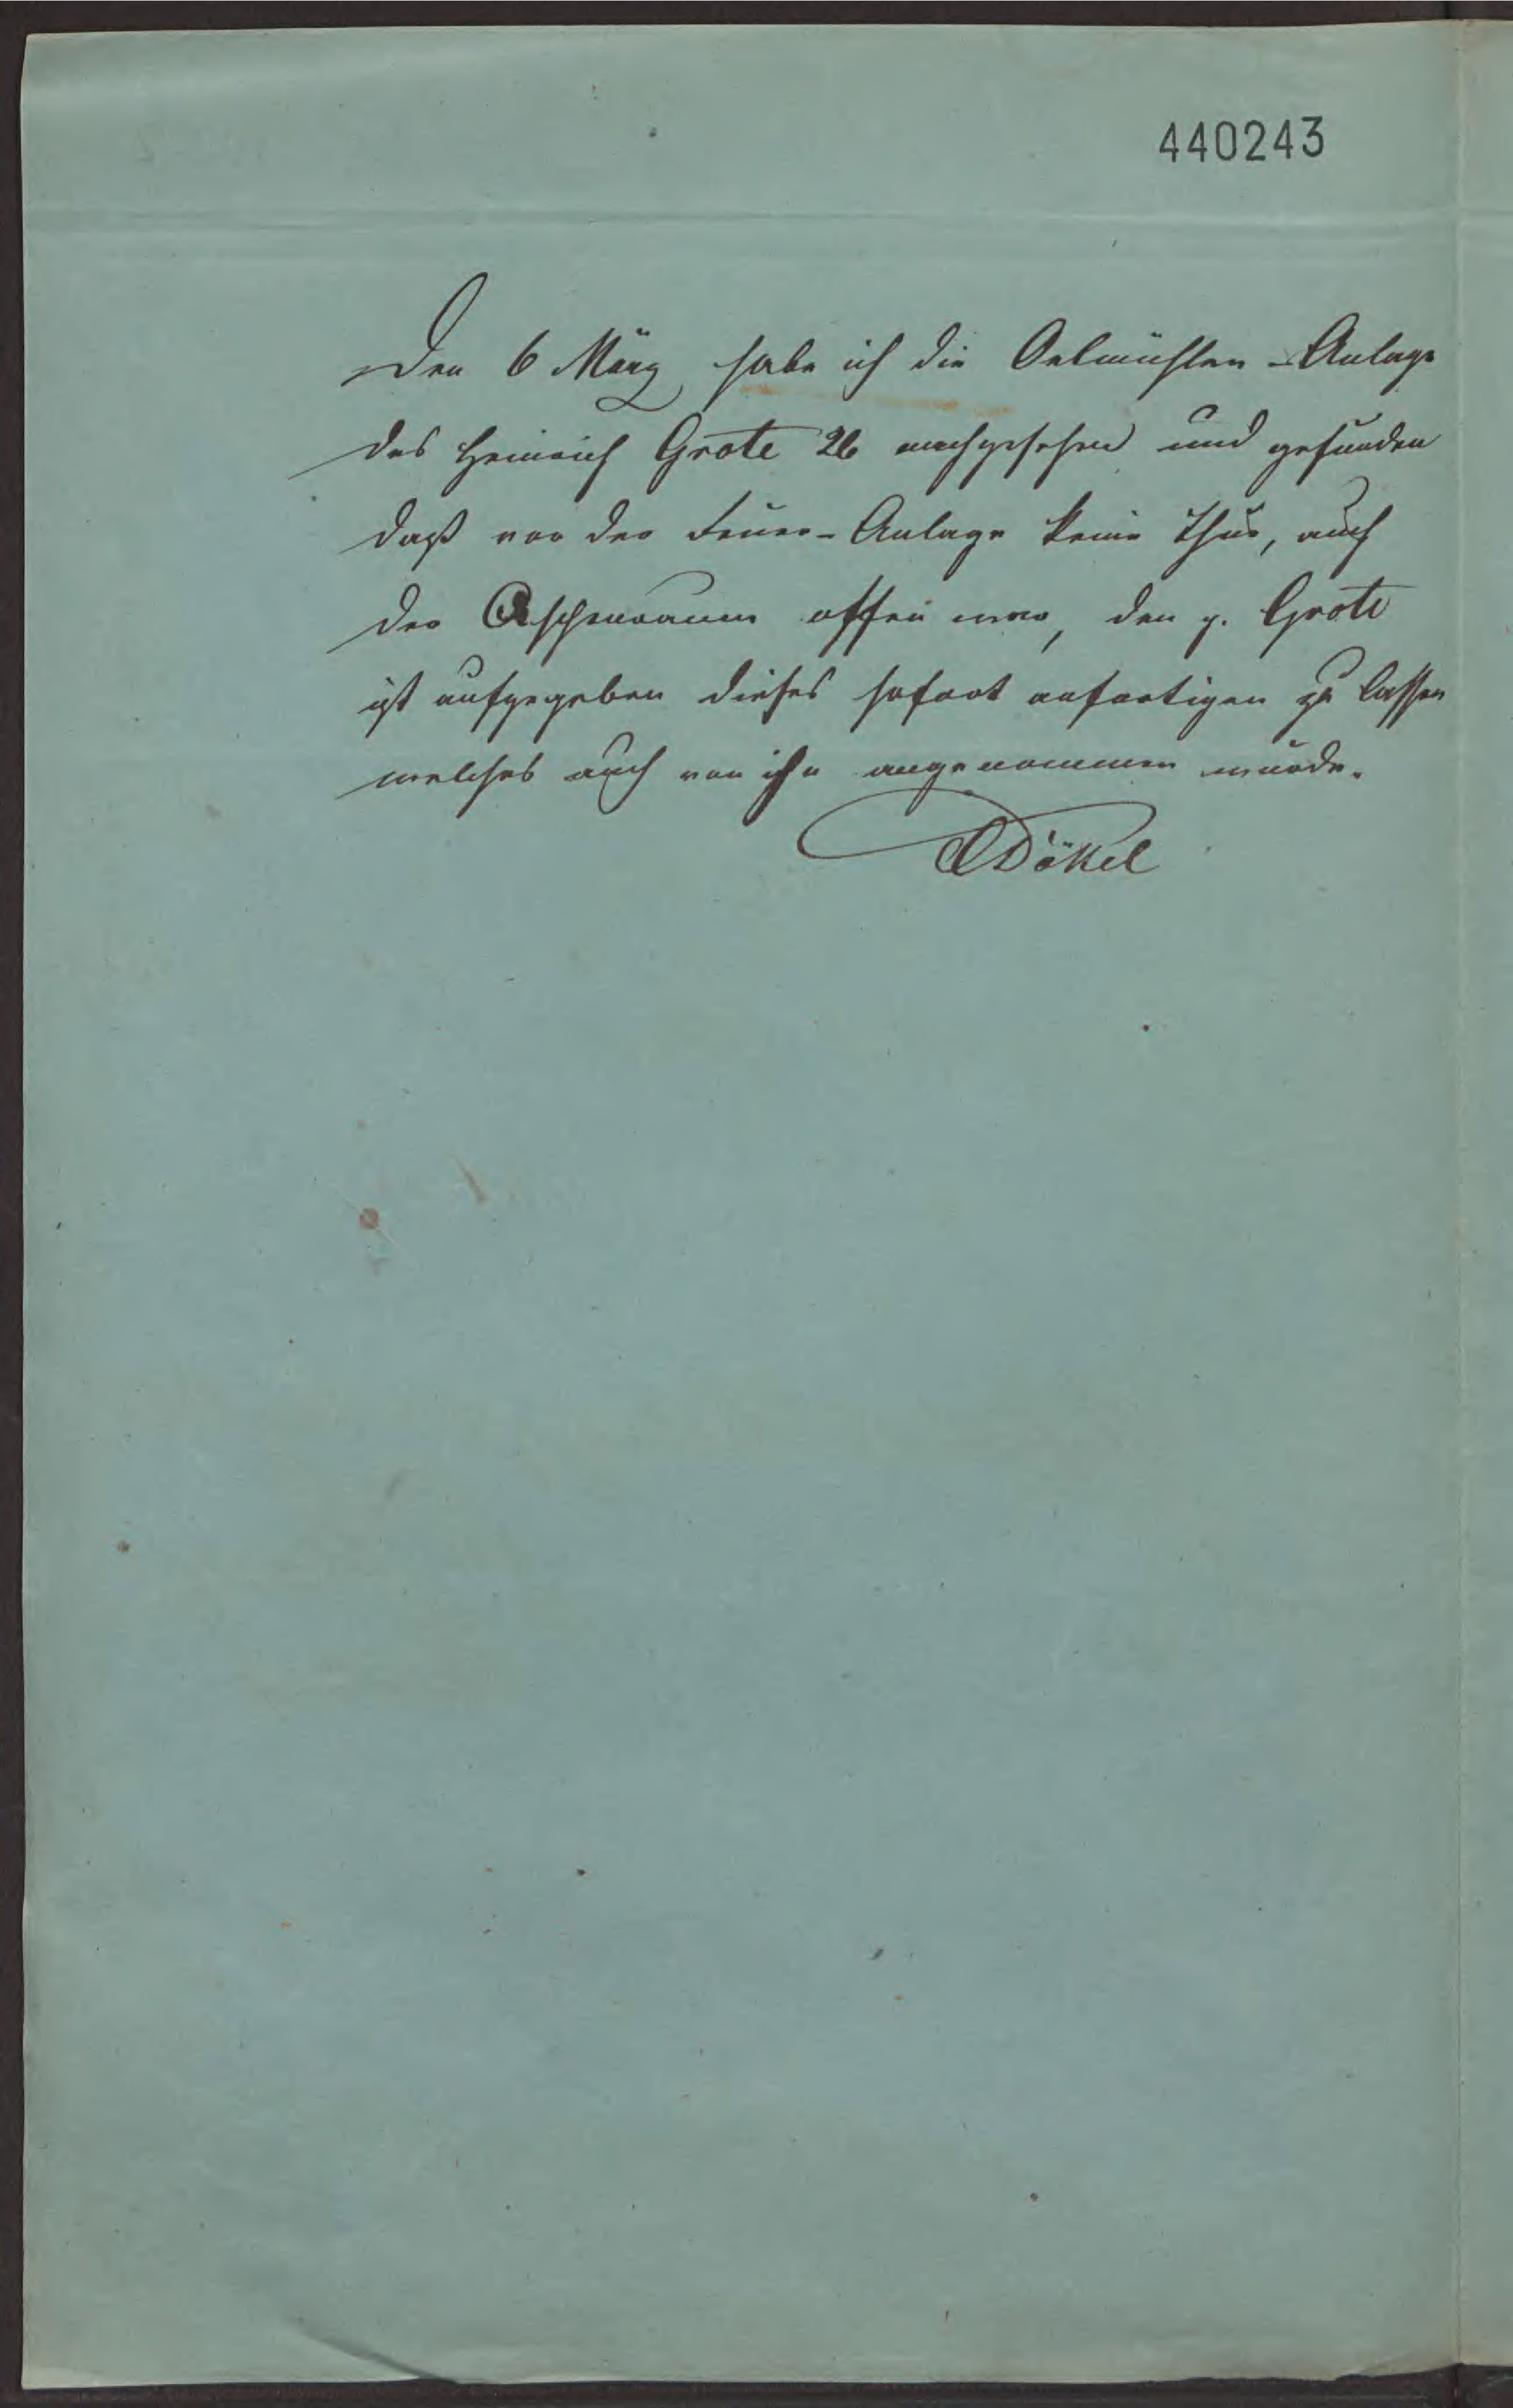 440243
Den 6 März habe ich die Oelmühlen-Anlage
des Heinrich Grote 26 nachgesehen und gefunden
daß vor der Feuer-Anlage keine Thür, auch
der Aschenraum offen war, den p. Grote
ist aufgegeben dieses sofort anfertigen zu lassen
welches auch von ihn angenommen wurde.
Dökel